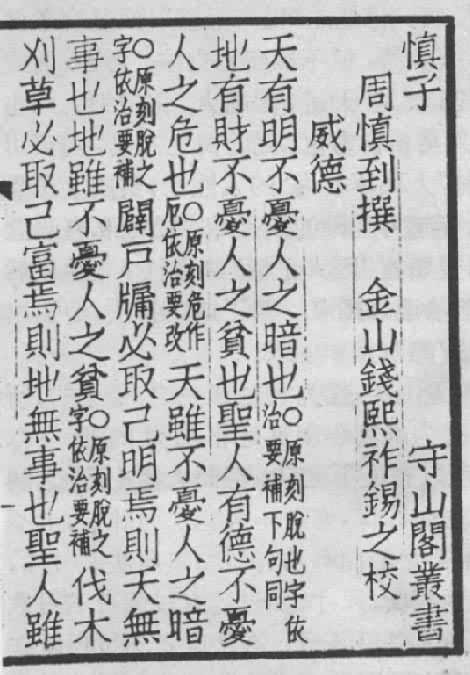 慎子 守山閣叢書
周慎到撰 金山錢熙祚錫之校
威德
天有明不憂人之暗也○原刻脫也字依治要補下句同
地有財不憂人之貧也聖人有德不憂
人之危也○原刻危作厄依治要改天雖不憂人之暗
○原刻脫之字依治要補闢戶牖必取己明焉則天無
事也地雖不憂人之貧○原刻脫之字依治要補伐木
刈草必取己富焉則地無事也聖人雖